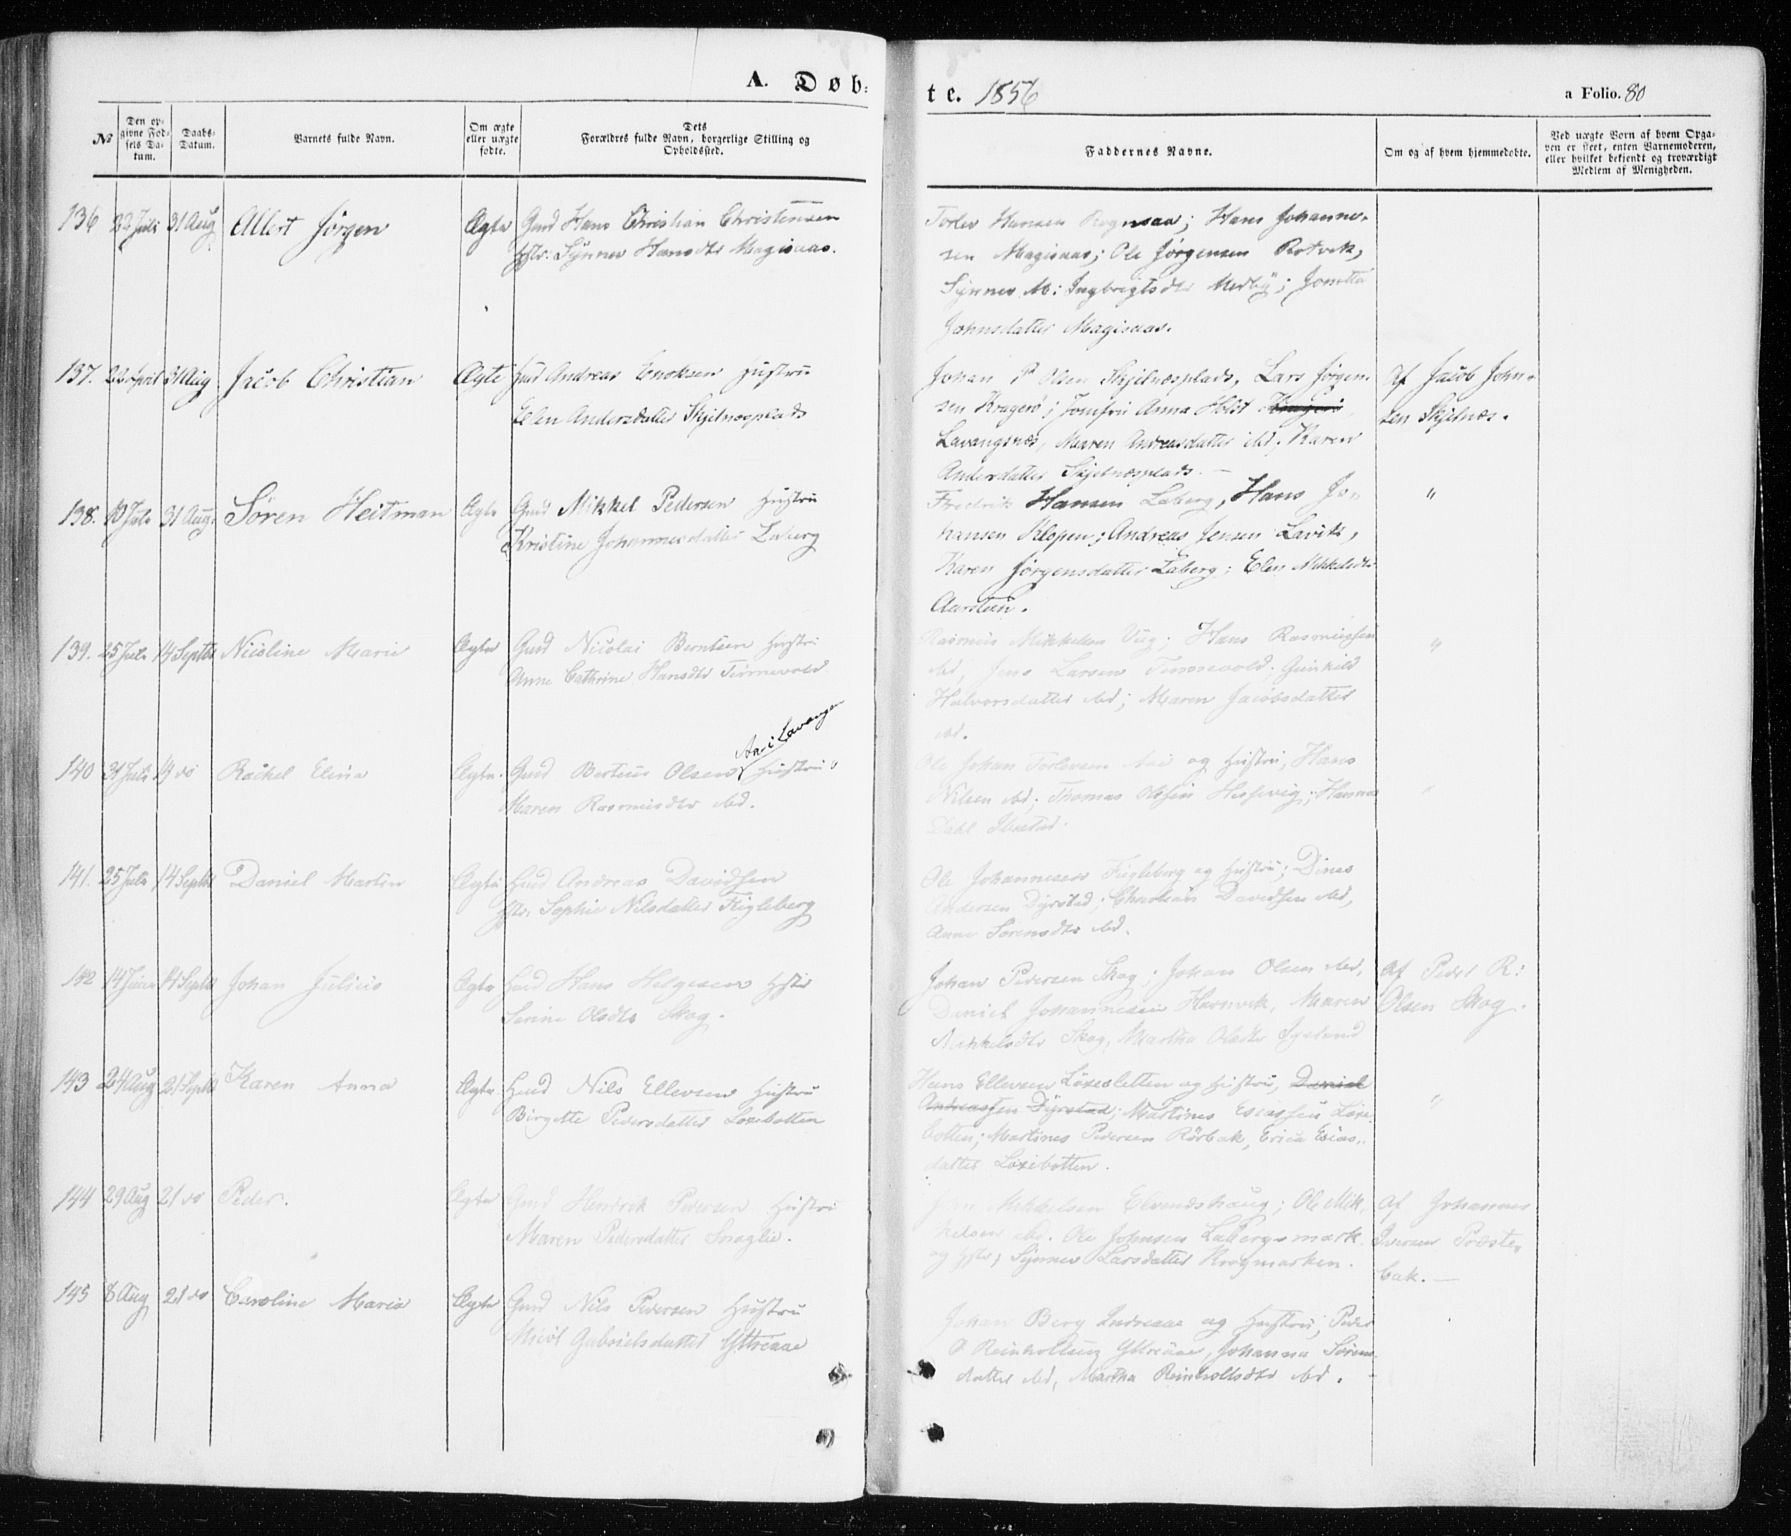 A. Døb:
te. 1856
a Folio. 80
№
Den op-
givne Fød-
sels Da-
tum.
Daabs-
Datum.
Barnets fulde Navn.
Om ægte
eller uægte
fødte.
Dets
Forældres fulde Navn, borgerlige Stilling og
Opholdssted.
Faddernes Navne.
Om og af hvem hjemmedøbte.
Ved uægte Børn af hvem Opga-
ven er skeet, enten Barnemoderen,
eller hvilket bekjendt og troværdigt
Medlem af Menigheden.
136 Juli 31 Aug Albert Jørgen Ægte Gmd Hans Christian Christensen
Hstr. Synnev Hansdtr Magisaas.
Torlev Hansen Rognsaa; Hans Johanne-
sen Magisaas; Ole Jørgensen Rotvik,
Synnev M: Ingbrigtsdtr Medby; Jonetta
Johnsdatter Magisaas.
137. 22 April 31 Aug Jacob Christian Ægte Hmd Andreas Enoksen Hustru
Elen Andersdatter Skjelnæsplads
Johan P Olsen Skjelnæsplads, Lars Jørgen-
sen Kragerø; Jomfru Anna Holst
Lavangsnæs, Maren Andreasdatter ibd; Karen
Andersdatter Skjelnæsplads. —
Af Jacob John-
sen Skjelnæs.
138. 10 Juli 31 Aug. Søren Heitman Ægte Gmd Mikkel Pedersen Hustru
Kristine Johannesdatter Laberg
Fredrik Hansen Laberg, Hans Jo-
hansen Klopen; Andreas Jensen Lavik,
Karen Jørgensdatter Laberg; Elen Mikkelsdtr
Aarstein.
"
139. 25 Juli 14 Septbr Nicoline Marie Ægte Gmd Nicolai Berntsen Hustru
Anne Cathrine Hansdtr Tennevold
Rasmus Mikkelsen Viig; Hans Rasmussen
ibd, Jens Larsen Tennevold; Gunhild
Halvorsdatter ibd; Maren Jacobsdatter
ibd.
"
140 31 Juli 14 do Rachel Elina Ægte. Gmd Berteus Olsen Aa i Lavangen Hustru
Maren Rasmusdtr ibd.
Ole Johan Torlevsen Aa og Hustru; Hans
Nilsen ibd; Thomas Olsen Hessevig; Hanna
Dahl Ibestad.
"
141. 25 Juli 14 Septbr Daniel Martin Ægte Hmd Andreas Davidsen
Hstr. Sophie Nilsdatter Fugleberg
Ole Johannesen Fugleberg og Hustru; Dines
Andersen Dyrstad; Christian Davidsen ibd,
Anne Sørensdtr ibd.
142 14 Juni 14 Septbr Johan Julius Ægte Hmd Hans Helgesen Hstr
Serine Olsdtr Skog.
Johan Pedersen Skog; Johan Olsen ibd,
Daniel Johannesen Havnvik, Maren
Mikkelsdtr Skog, Martha Olsdtr
Af Peder R:
Olsen Skog.
143 24 Aug 21 Septbr Karen Anna Ægte Hmd Nils Ellevsen Hustru
Birgitte Pedersdatter Løxebotten
Hans Ellevsen Løxesletten og Hustru, Daniel
Andreassen Dyrstad; Martines Esaissen Løxe-
botten; Martines Pedersen Rørbak, Erica Esias-
datter Løxebotten.
"
144 29 Aug 21 do Peder. Ægte Gmd Hendrik Pedersen Hustru
Maren Pedersdatter Soraglie.
Mikkelsen Elvenæshaug; Ole Mik-
kelsen ibd. Ole Johnsen Labergsmark
og Hstr; Synnev Larsdatter Krogmarken.
Af Johannes
Iversen Præste-
bak. —
145 8 Aug 21 do Caroline Maria Ægte Gmd Nils Pedersen Hustru
Gabrielsdatter Yttreaae
Johan Berg Indreaae og Hustru; Peder
O Reinholtsen Yttreaae, Johanna Sørens-
datter ibd, Martha Reinholtsdtr ibd.